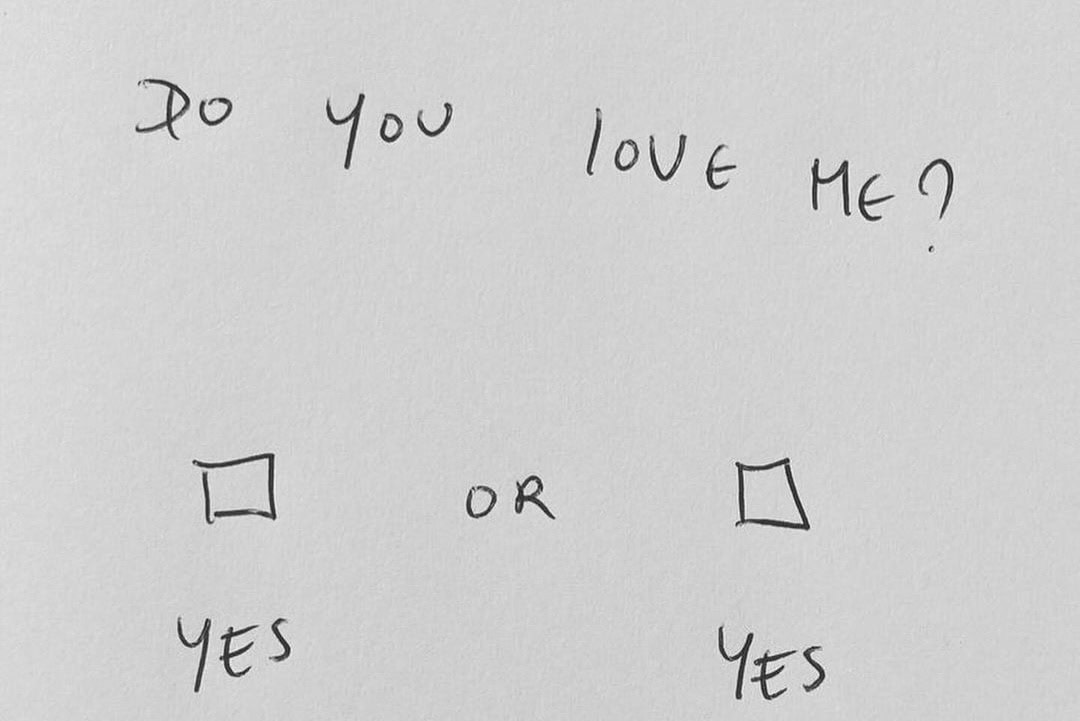 DO YOU lOVE ME?
OR
YES YES